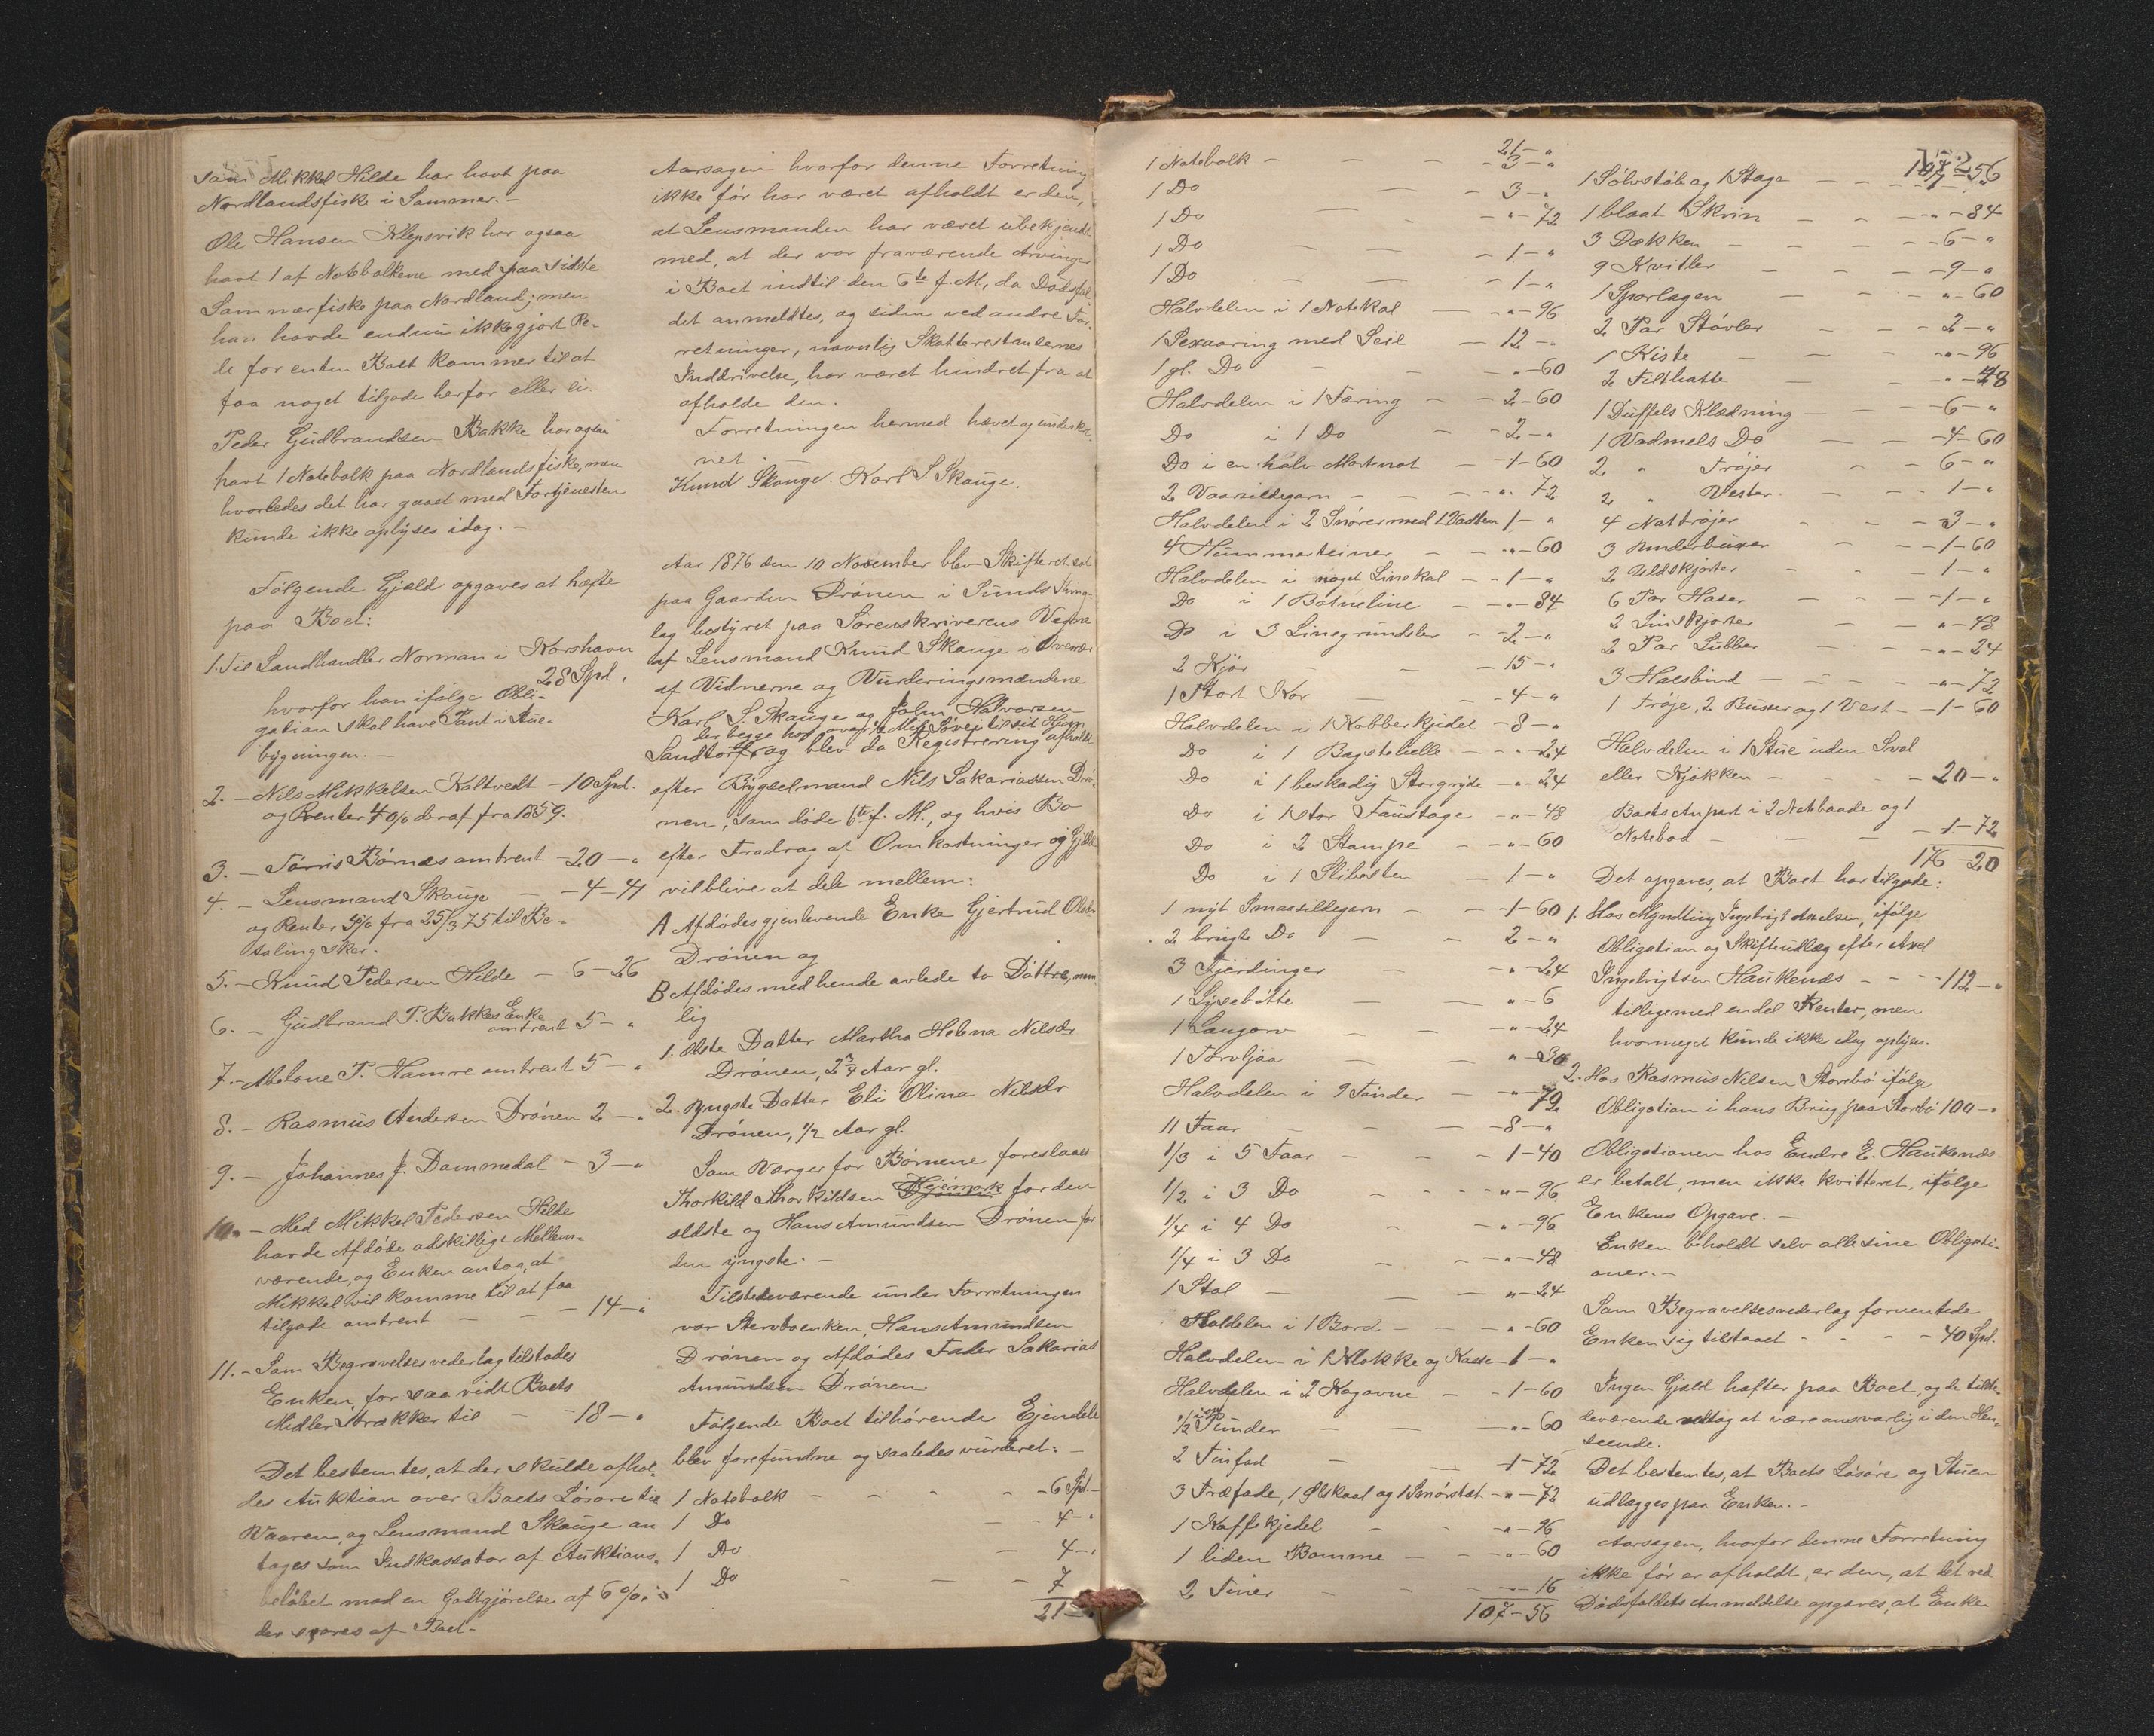 som Mikkel Hilde har havt paa
Nordlandsfiske i Sommer. -
Ole Hansen Klepsvik har ogsaa
havt 1 af Notebolkene med paa sidste
Sommerfiske paa Nordland; men
han havde endnu ikke gjort Re-
de for enten Boet kommer til at
faa noget tilgode herfor eller ei.
Peder Gudbrandsen Bakke har ogsaa
havt 1 Notebolk paa Nordlandsfiske, men
hvorledes det har gaaet med Fortjenesten
kunde ikke oplyses idag. -
Følgende Gjæld opgaves at hefte
paa Boet:
1. Til Landhandler Norman i Korshavn
28 Spd.
hvorfor han ifølge Obli-
gation skal have Pant i Stue-
bygningen. -
2. - Nils Mikkelsen Koltvedt - 10 Spd.
og Renter 4 % deraf fra 1859.
3. - Tørris Børnæs omtrent - 20 - "
4. - Lensmand Skauge - - 4 - 41
og Renter 5% fra 25/3 75 til Be-
taling sker.
5. - Knud Pedersen Hilde - 6 - 26
6. - Gudbrand P. Bakkes Enke
omtrent 5 - "
7. - Abelone P. Hamre omtrent 5 - "
8. - Rasmus Andersen Drönen 2 - "
9. - Johannes J. Dommedal - 3 - "
10. - Med Mikkel Pedersen Hilde
havde Afdøde adskillige Mellem-
værende, og Enken antog, at
Mikkel vil komme til at faa
tilgode omtrent - - 14 - "
11. - Som Begravelsesvederlag tilstodes
Enken, for saavidt Boets
Midler strækker til - - 18 - "
Det bestemtes, at der skulde afhol-
des Auktion over Boets Løsøre til
Vaaren, og Lensmand Skauge an
tages som Indkassator af Auktions-
beløbet mod en Godtgjørelse af 6 %,
der svares af Boet. -
Aarsagen hvorfor denne Forretning
ikke før har været afholdt er den,
at Lensmanden har været ubekjendt
med, at der var fraværende Arvinger
i Boet indtil den 6te f. M., da Dødsfal
det anmeldtes, og siden ved andre For-
retninger, navnlig Skatterestancernes
Inddrivelse, har været hindret fra at
afholde den.
Forretningen hermed hævet og underskre-
net.
Knud Skauge. Karl S. Skauge.
Aar 1876 den 10 November blev Skifteret sat
paa Gaarden Drönen i Sunds Thing-
lag bestyret paa Sorenskriverens Vegne
af Lensmand Knud Skauge i Overvær
af Vidnerne og Vurderingsmændene
Karl S. Skauge og John Halvorsen
der begge har over 1/2 Mil Søvei til sit Hjem
Sandtorf og blev da Registrering afholdt
efter Bygselmand Nils Sakariassen Drö-
nen, som døde 6te f. M., og hvis Bo
efter Fradrag af Omkostninger og Gjæld
vil blive at dele mellem:
A Afdødes gjenlevende Enke Gjertrud Olsdr
Drönen og
B Afdødes med hende avlede to Døttre, nem
lig
1. Ælste Datter Martha Helena Nilsdr
Drönen, 2 3/4 Aar gl.
2. Yngste Datter Eli Olina Nilsdr
Drönen, 1/2 Aar gl.
Som Værger for Børnene foreslaaes
Thorkild Thorkildsen for den
ældste og Hans Amundsen Drönen for
den yngste. -
Tilstedeværende under Forretningen
var Stervboenken, Hans Amundsen
Drönen og Afdødes Fader Sakarias
Amundsen Drönen.
Følgende Boet tilhørende Ejendele
blev forefundne og saaledes vurderet: -
1 Notebolk - - - - 6 Spd. -
1 Do - - 4 - "
1 Do - 4 - "
1 Do - - - 7
21
21 - "
1 Notebolk - - - 3 - "
1 Do - - 3 - "
1 Do - - " - 72
1 Do - - 1 - "
1 Do - - - 1 - "
Halvdelen i 1 Notekol - " - 96
1 Sexaaring med Seil - 12 - "
1 gl. Do - - " - 60
Halvdelen i 1 Færing - - 2 - 60
Do i 1 Do - - 2 - "
Do i en halv Mortnot - - 1 - 60
2 Vaarsildegarn - - - " - 72
Halvdelen i 2 Snører med 1 Vadsten 1 - "
4 Hummerteiner - - " - 60
Halvdelen i noget Linekol - - 1 - "
Do i 1 Botneline - - " - 84
Do i 3 Linegrundsler - 2 - "
2 Kjör - - - 15 - "
1 Stort Kar - - - 4 - "
Halvdelen i 1 Kobberkjedel - 8 - "
Do i 1 Bagstehelle - - " - 24
Do i 1 beskadig Storgryde - " - 24
Do i 1 stor Faustage - " - 48
Do i 2 Stampe - " - 60
Do i 1 Slibesten - 1 - "
1 nyt Smaasildegarn - - 1 - 60
2 brugte Do - - 2 - "
3 Fjerdinger - - " - 24
1 Lysebøtte - - " - 6
1 Langorv - - " - 24
1 Torvljaa - - " - 30
Halvdelen i 9 Tønder - " - 72
11 Faar - - - 8 - "
1/3 i 5 Faar - - - 1 - 40
1/2 i 3 Do - - - " - 96
1/4 i 4 Do - - " - 96
1/4 i 3 Do - - " - 48
1 Stol - - " - 24
Haldelen i 1 Bord - - " - 60
Halvdelen i 1 Klokke og Kasse 1 - "
Halvdelen i 2 Kagovne - - 1 - 60
1/2 Punder - - " - 60
2 Tinfad - - 1 - 72
3 Træfade, 1 Ølskaal og 1 Smørstet - " - 72
1 Kaffekjedel - - " - 96
1 liden Bomme - - " - 60
2 Tiner - - - " - 16
107 - 56
107 - 56
1 Sølvstøb og 1 Stage - - 1 - "
1 blaat Skrin - - - " - 84
3 Dækken - - - - 6 - "
9 Kvitler - - - 9 - "
1 Sporlagen - - - " - 60
2 Par Støvler - - 2 - "
1 Kiste - - - " - 96
2 Filthatte - - " - 48
1 Duffels Klædning - - - 6 - "
1 Vadmels Do - - 4 - 60
2 " Trøjer - - 6 - "
2 " Vester. - - - 1 - "
4 Nattrøjer - - 3 - "
3 Underbuxer - - - 1 - 60
2 Uldskjorter - - 1 - "
6 Par Hoser - - - 1 - "
2 Linskjorter - - " - 48
2 Par Lubber - - " - 24
3 Halsbind - - - - " - 72
1 Trøje, 2 Buxer og 1 Vest - - 1 - 60
Halvdelen i 1 Stue uden Sval
eller Kjøkken - - - 20 - "
Boets Anpart i 2 Notebaade og 1
Notebod - - - 1 - 72
176 - 20
Det opgaves, at Boet har tilgode:
1. Hos Myndling Ingebrigt Axelsen, ifølge
Obligation og Skifteudlæg efter Axel
Ingebrigtsen Haukenæs - - 112 - "
tilligemed endel Renter, men
hvormeget kunde ikke idag oplyses.
2. Hos Rasmus Nilsen Storebø ifølge
Obligation i hans Brug paa Storbø 100 - "
Obligationen hos Endre E. Haukenæs
er betalt, men ikke kvitteret, ifølge
Enkens Opgave. -
Enken beholdt selv alle sine Obligati-
oner. -
Som Begravelsesvederlag forventede
Enken sig tilstaaet - - - 40 Spd.
Ingen Gjæld hefter paa Boet, og de tilste-
deværende vedtog at være ansvarlig i den Hen-
seende.
Det bestemtes, at Boets Løsøre og Stuen
udlægges paa Enken. -
Aarsagen, hvorfor denne Forretning
ikke før er afholdt, er den, at det ved
Dødsfaldets Anmeldelse opgaves, at Enken